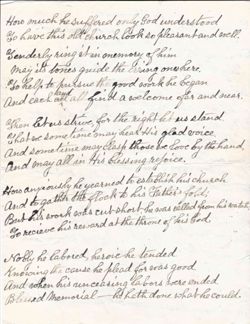 How much he suffered only God understood
To have this old church look so pleasant and well.
Tenderly ring it in memory of him
May its tones guide the living one here,
To help to pursue the good work he began
And each and all find a welcome far and near.
Then let us strive, for the right let us stand
That we sometime may hear His glad voice
And sometime may clasp those we love by the hand
And may all in His blessing rejoice.
How anxiously he yearned to establish his church
And to gather the flock to his Father's fold;
But his work was cut short he was called from his watch,
To recieve his reward at the throne of his God.
Nobly he labored, heroic he tended
Knowing the cause he plead for was good
And when his unceasing labors were ended
Blessed Memorial — he hath done what he could.